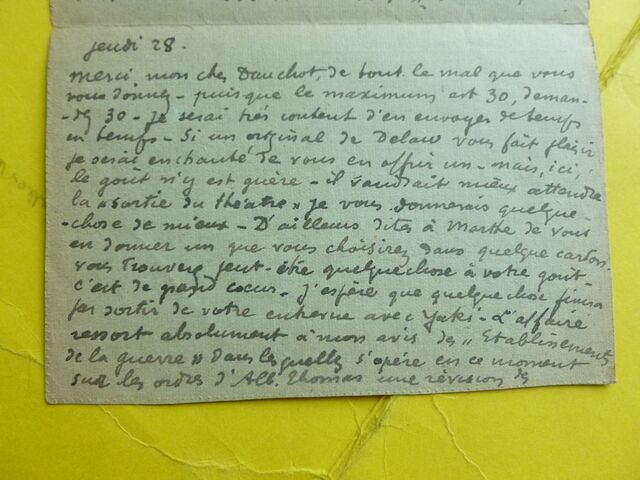 jeudi 28.
merci mon cher Dauchot, de tout le mal que vous
vous donnez - puisque le maximum est 30, deman-
-dez 30 - je serai très content d'en envoyer de temps
en temps - Si un original de Delaw vous fait plaisir
je serai enchanté de vous en offrir un - mais, ici,
le goût n'y est guère - il vaudrait mieux attendre
la "sortie du théatre" je vous donnerais quelque-
-chose de mieux - D'ailleurs dites à Marthe de vous
en donner un que vous choisirez dans quelque carton.
vous trouverez peut-être quelquechose à votre goût -
c'est de grand cœur - J'espère que quelque chose finira
par sortir de votre entrevue avec Yaki - L'affaire
ressort absolument à mon avis des "Etablissements
de la guerre" dans lesquels s'opère en ce moment
sur les ordres d'Alb. Thomas une révision des